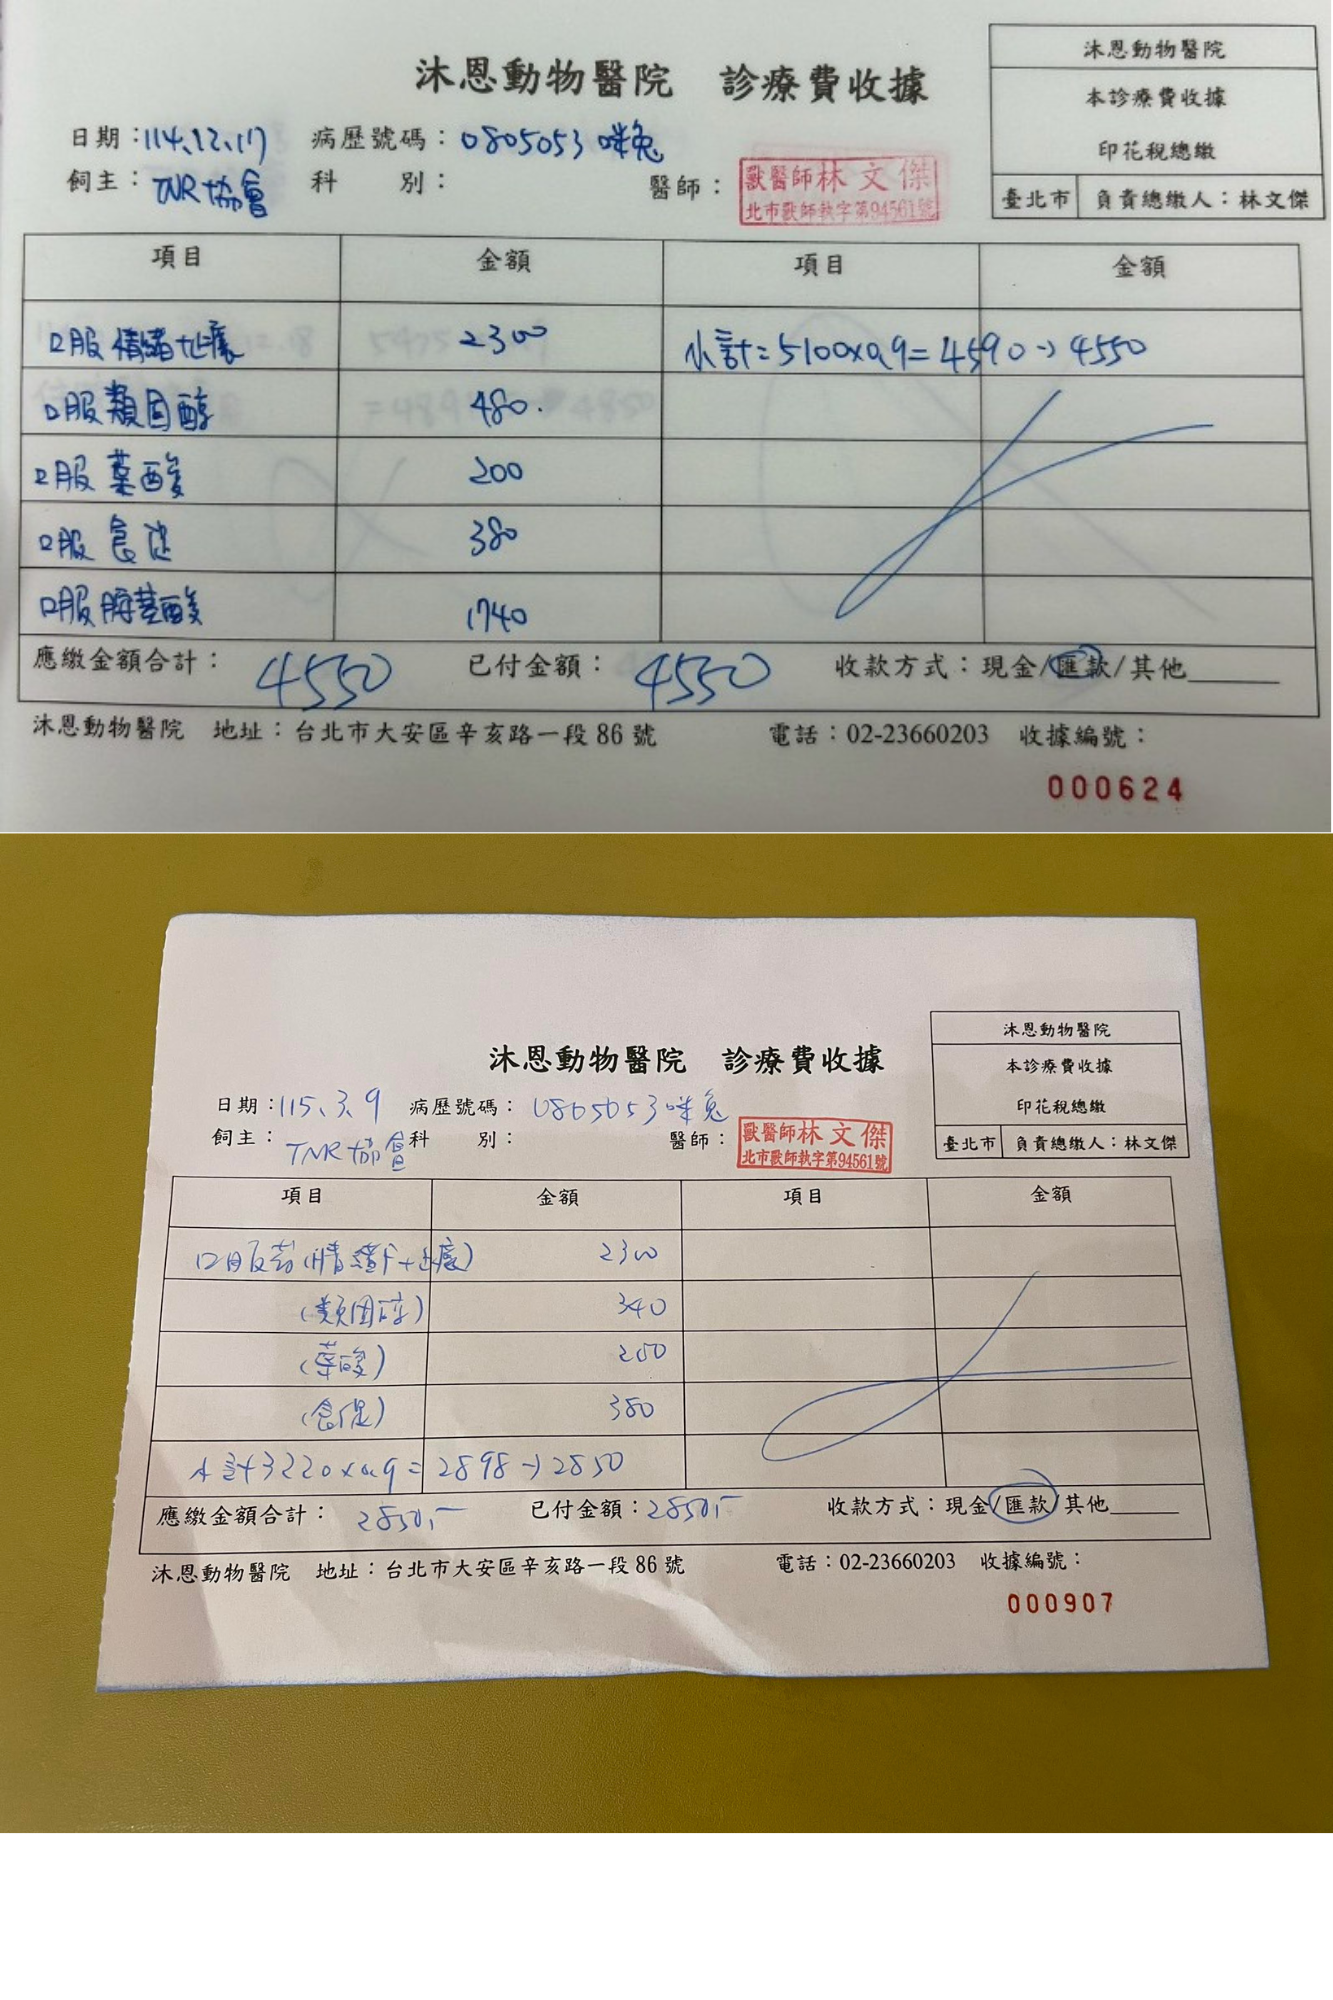 沐恩動物醫院 診療費收據
沐恩動物醫院
本診療費收據
印花稅總繳
臺北市 負責總繳人：林文傑
日期：114.12.17 病歷號碼：0805053 咪兔
飼主：TNR協會 科 別： 醫師：
獸醫師林文傑
北市獸師執字第94561號
項目 金額 項目 金額
口服情緒+止癢 2300 小計=5100x0.9=4590→4550
口服類固醇 480.
口服葉酸 200
口服食促 380
口服胺基酸 1740
應繳金額合計：4550 已付金額：4550 收款方式：現金/匯款/其他______
沐恩動物醫院 地址：台北市大安區辛亥路一段86號 電話：02-23660203 收據編號：
000624
沐恩動物醫院 診療費收據
沐恩動物醫院
本診療費收據
印花稅總繳
臺北市 負責總繳人：林文傑
日期：115.3.9 病歷號碼：0805053咪兔
飼主：TNR協會 科 別： 醫師：
獸醫師林文傑
北市獸師執字第94561號
項目 金額 項目 金額
口服药(情緒+止癢) 2300
(類固醇) 340
(葉酸) 200
(食促) 380
小計3220x0.9=2898→2850
應繳金額合計：2850.- 已付金額：2850.- 收款方式：現金/匯款/其他______
沐恩動物醫院 地址：台北市大安區辛亥路一段86號 電話：02-23660203 收據編號：
000907